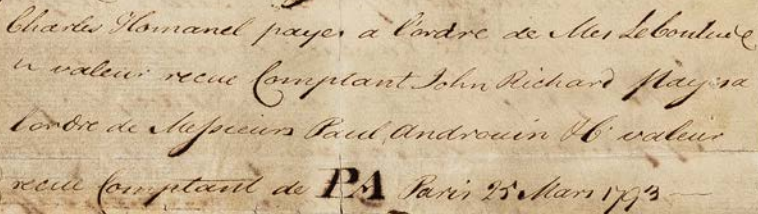 Charles Homanel payes a l'ordre de Mes LeCoulve
valeur recue Comptant John Richard Payes a
Lordre de Messieurs Paul Androuin & C° valeur
recue Comptant de PA Paris 25 Mars 1793